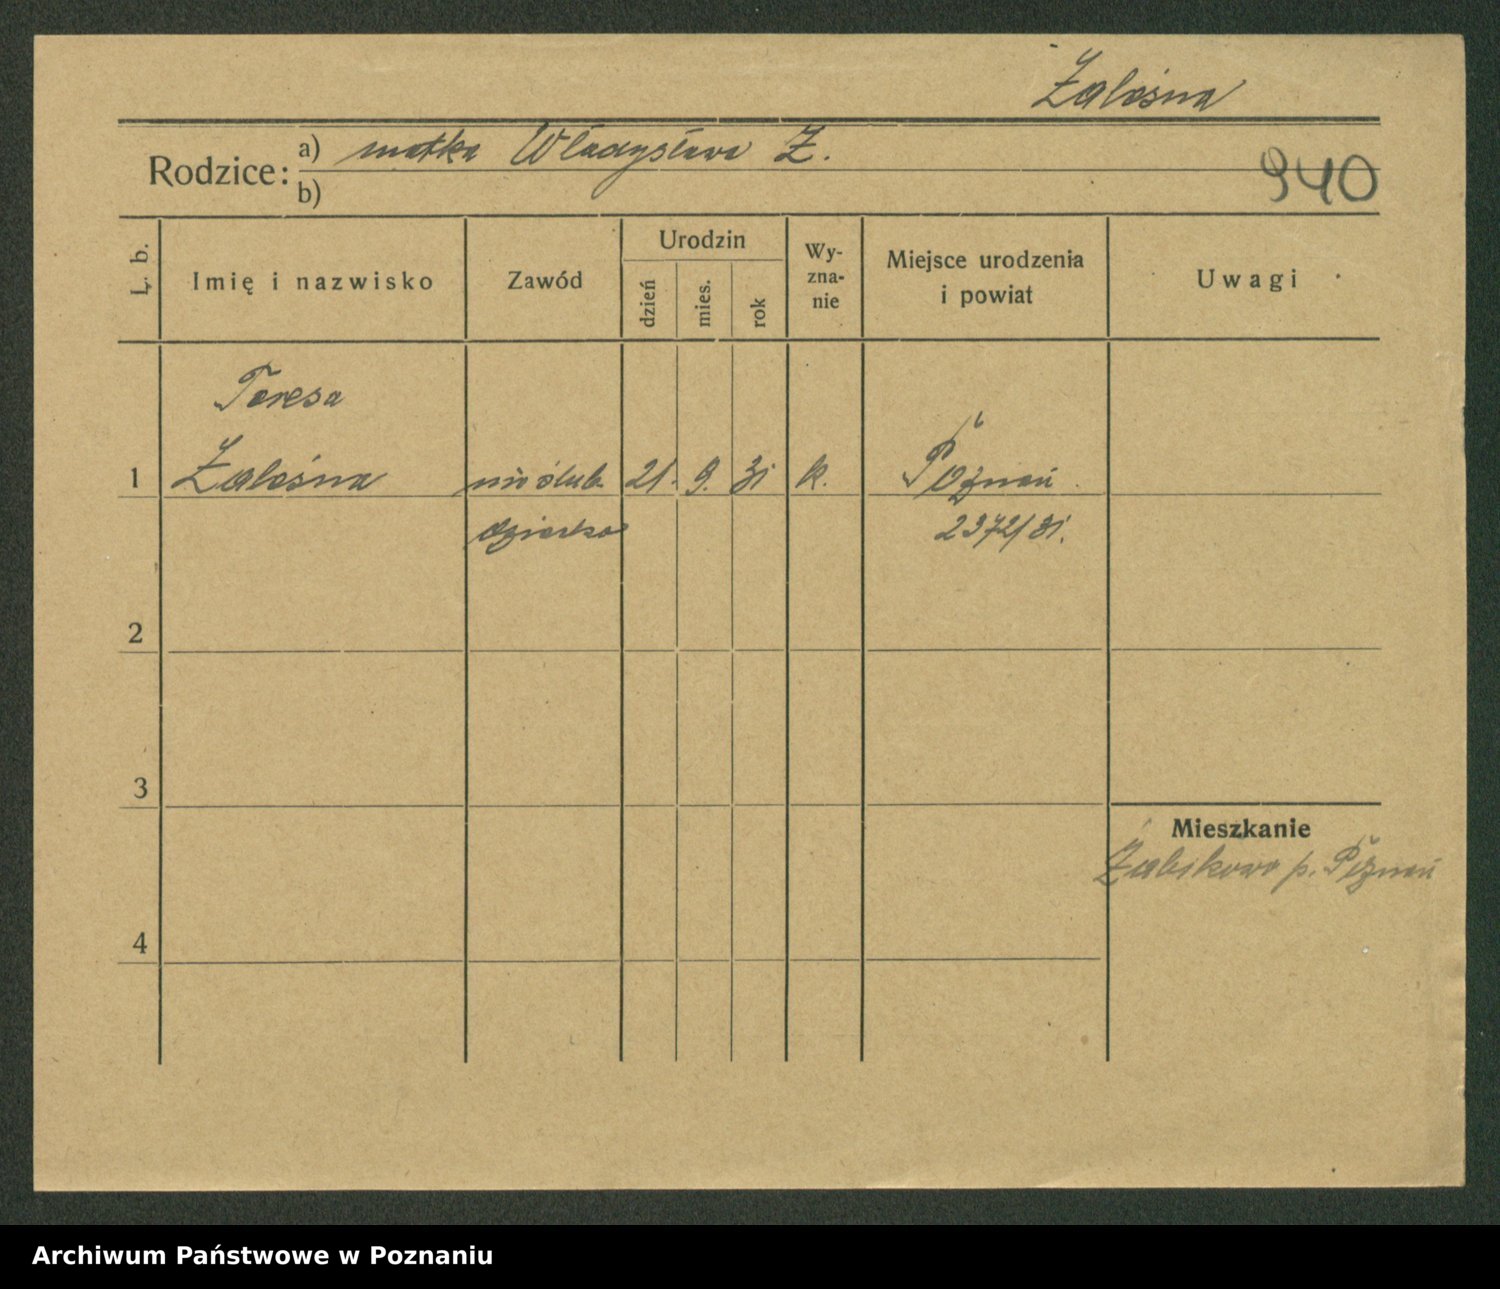 Zaleśna
Rodzice: a) matka Władysława Z.
b)
940
L. b.
Imię i nazwisko
Zawód
Urodzin
dzień
mies.
rok
Wy-
zna-
nie
Miejsce urodzenia
i powiat
Uwagi
Teresa
1 Zaleśna nieślub. 21. 9. 31 k. Poznań
dziecko 2372/31.
2
3
Mieszkanie
Żabikowo p. Poznań
4
Archiwum Państwowe w Poznaniu